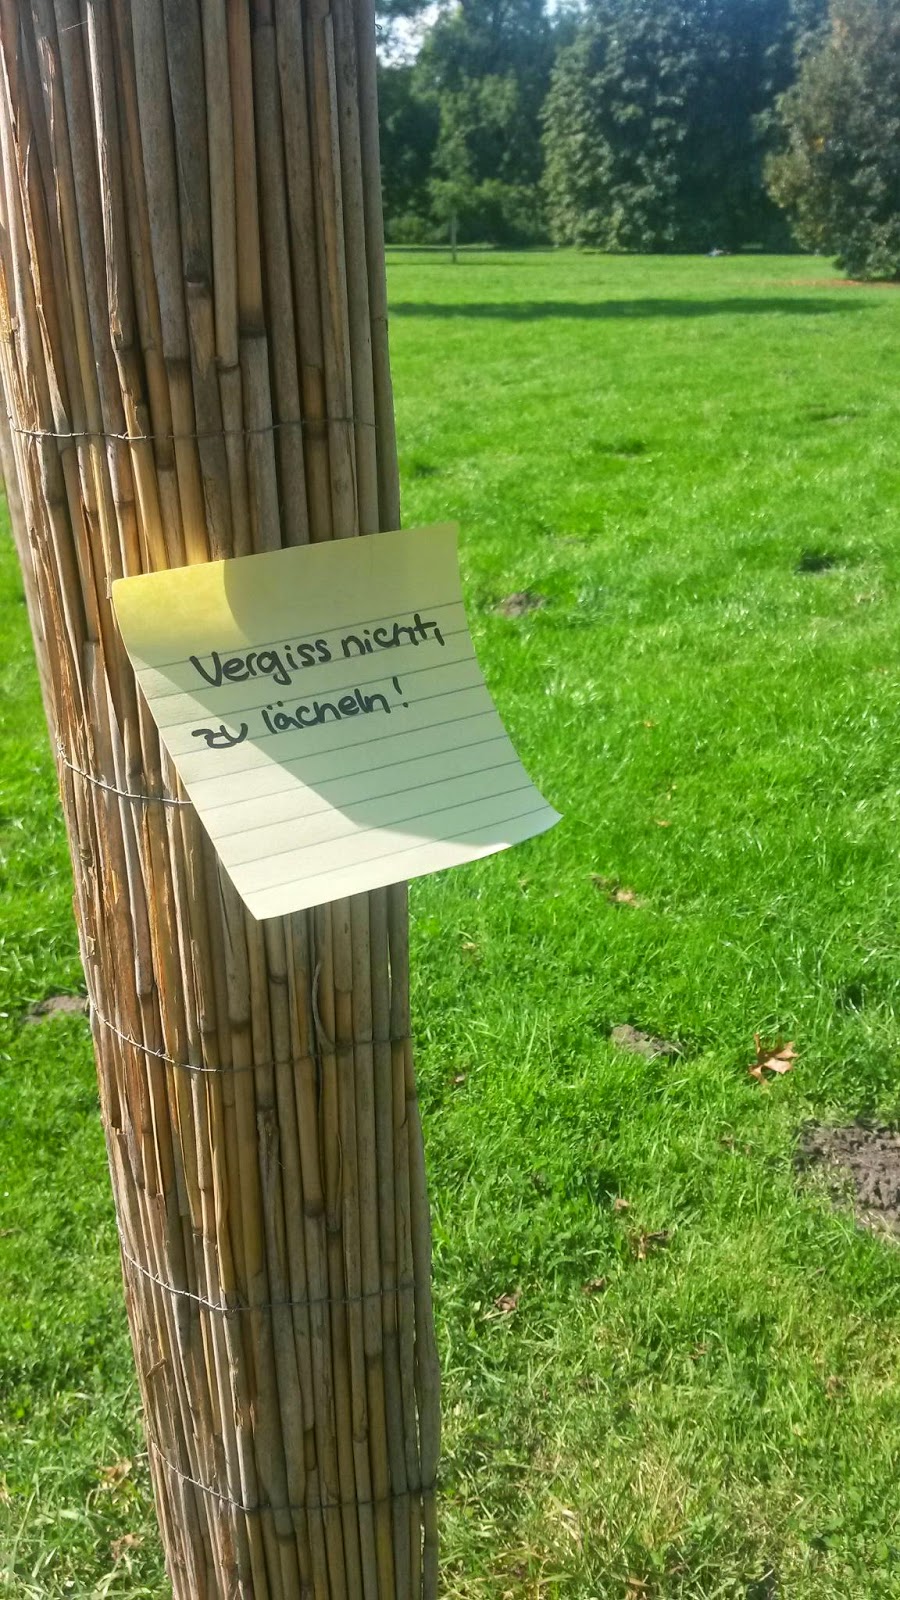 Vergiss nicht,
zu lächeln!